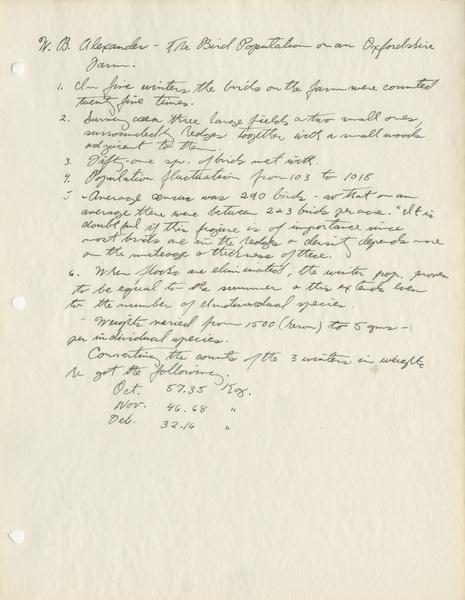 W. B. Alexander - The Bird Population on an Oxfordshire
Farm.
1. In five winters the birds on the farm were counted
twenty five times.
2. Survey area three large fields & two small ones,
surrounded by hedges together with a small woods
adjacent to them.
3. Fifty-one sp. of birds met with.
4. Population fluctuation from 103 to 1018
5 - Average census was 240 birds - so that on an
average there were between 2 & 3 birds per acre. "It is
doubtful if this figure is of importance since
most birds are in the hedges & density depends more
on the mileage & thickness of these.
6. When flocks are eliminated, the winter pop. proves
to be equal to the summer & this extends even
to the number of individual species.
- Weights varied from 1500 (heron) to 5 gms -
per individual species.
Converting the counts of the 3 winters in weights
he got the following.
Oct. 57.35 Kg.
Nov. 46.68 "
Deb. 32.16 "